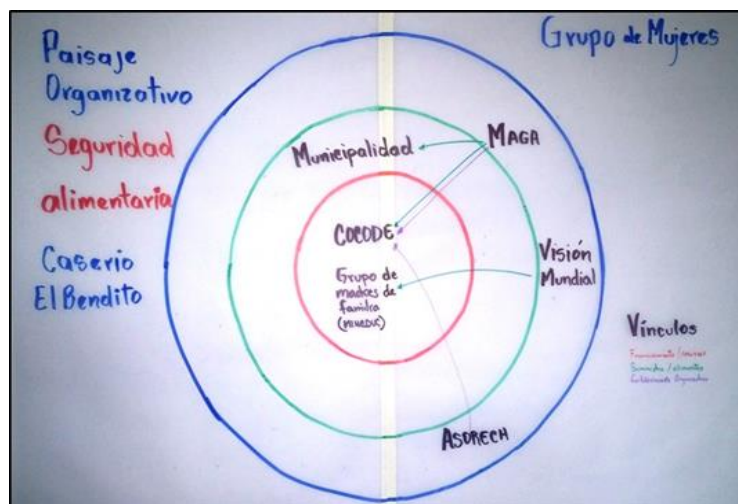 Paisaje
Organizativo
Seguridad
alimentaria
Caserio
El Bendito
Grupo de Mujeres
Municipalidad
MAGA
COCODE
Grupo de
madres de
familia
(MINEDUC)
Visión
Mundial
ASORECH
Vínculos